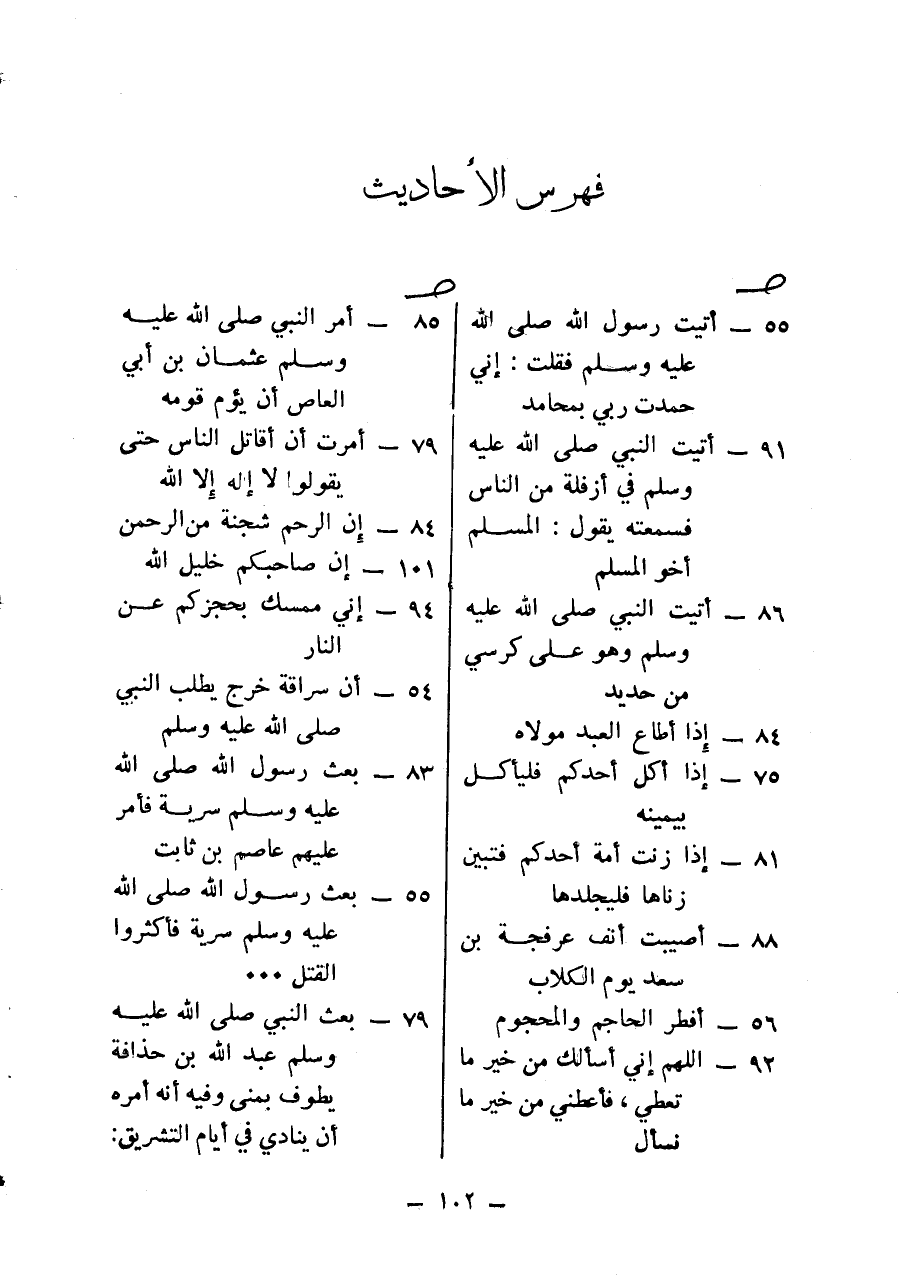 فهرس الأحاديث
صـ
٥٥ — أتيت رسول الله صلى الله
عليه وسلم فقلت : إني
حمدت ربي بمحامد
٩١ — أتيت النبي صلى الله عليه
وسلم في أزفلة من الناس
فسمعته يقول : المسلم
أخو المسلم
٨٦ — أتيت النبي صلى الله عليه
وسلم وهو على كرسي
من حديد
٨٤ — إذا أطاع العبد مولاه
٧٥ — إذا أكل أحدكم فليأكل
بيمينه
٨١ — إذا زنت أمة أحدكم فتبين
زناها فليجلدها
٨٨ — أصيبت أنف عرفجة بن
سعد يوم الكلاب
٥٦ — أفطر الحاجم والمحجوم
٩٢ — اللهم إني أسألك من خير ما
تعطي ، فأعطني من خير ما
نسأل
صـ
٨٥ — أمر النبي صلى الله عليه
وسلم عثمان بن أبي
العاص أن يؤم قومه
٧٩ — أمرت أن أقاتل الناس حتى
يقولوا لا إله إلا الله
٨٤ — إن الرحم شجنة من الرحمن
١٠١ — إن صاحبكم خليل الله
٩٤ — إني ممسك بحجزكم عن
النار
٥٤ — أن سراقة خرج يطلب النبي
صلى الله عليه وسلم
٨٣ — بعث رسول الله صلى الله
عليه وسلم سرية فأمر
عليهم عاصم بن ثابت
٥٥ — بعث رسول الله صلى الله
عليه وسلم سرية فأكثروا
القتل ...
٧٩ — بعث النبي صلى الله عليه
وسلم عبد الله بن حذافة
يطوف بمنى وفيه أنه أمره
أن ينادي في أيام التشريق:
— ١٠٢ —